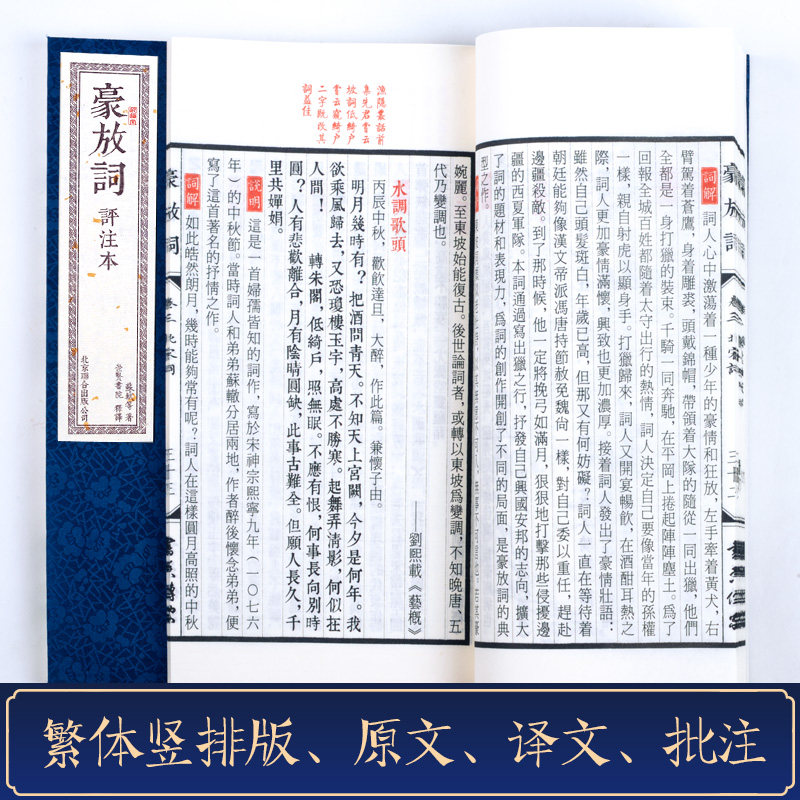 豪放詞
評注本
蘇軾等著
崇賢書院 釋譯
北京聯合出版公司
詞解 詞人心中激蕩着一種少年的豪情和狂放，左手牽着黃犬，右
臂駕着蒼鷹，身着雕裘，頭戴錦帽，帶領着大隊的隨從一同出獵，他們
全都是一身打獵的裝束。千騎一同奔馳，在平岡上捲起陣陣塵土。爲了
回報全城百姓都隨着太守出行的熱情，詞人決定自己要像當年的孫權
一樣，親自射虎以顯身手。打獵歸來，詞人又開宴暢飲，在酒酣耳熱之
際，詞人更加豪情滿懷，興致也更加濃厚。接着詞人發出了豪情壯語：
雖然自己頭髮斑白，年歲已高，但那又有何妨礙？詞人一直在等待着
朝廷能夠像漢文帝派馮唐持節赦免魏尚一樣，對自己委以重任，趕赴
邊疆殺敵。到了那時候，他一定將挽弓如滿月，狠狠地打擊那些侵擾邊
疆的西夏軍隊。本詞通過寫出獵之行，抒發自己興國安邦的志向，擴大
了詞的題材和表現力，爲詞的創作開創了不同的局面，是豪放詞的典
型之作。
漁隱叢話前
集先君嘗云
坡詞低綺戶
嘗云窺綺戶
二字既改其
詞益佳
婉麗。至東坡始能復古。後世論詞者，或轉以東坡爲變調，不知晚唐、五
代乃變調也。
——劉熙載《藝概》
水調歌頭
丙辰中秋，歡飲達旦，大醉，作此篇。兼懷子由。
明月幾時有？把酒問青天。不知天上宮闕，今夕是何年。我
欲乘風歸去，又恐瓊樓玉宇，高處不勝寒。起舞弄清影，何似在
人間！ 轉朱閣，低綺戶，照無眠。不應有恨，何事長向別時
圓？人有悲歡離合，月有陰晴圓缺，此事古難全。但願人長久，千
里共嬋娟。
說明 這是一首婦孺皆知的詞作，寫於宋神宗熙寧九年（一〇七六
年）的中秋節。當時詞人和弟弟蘇轍分居兩地，作者醉後懷念弟弟，便
寫了這首著名的抒情之作。
詞解 如此皓然朗月，幾時能夠常有呢？詞人在這樣圓月高照的中秋
豪放詞
卷三 北宋詞
三十三
繁体竖排版、原文、译文、批注